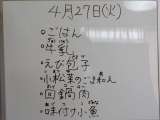 4月27日(火)
○ごはん
○牛乳
○えび包子
○小松菜のごまあん
○回鍋肉
○味付小魚